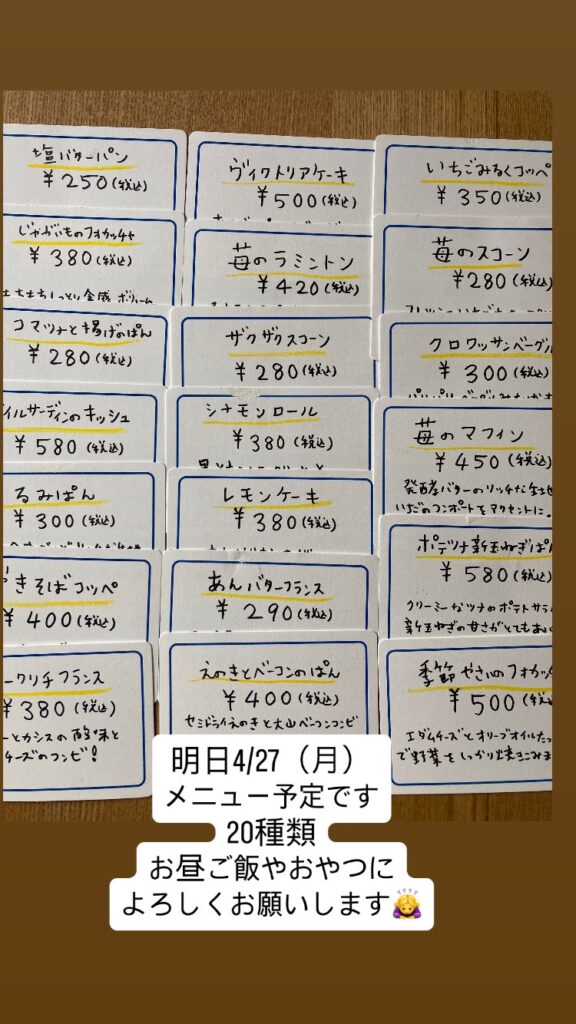 塩バターパン
¥250(税込)
じゃがいものフォカッチャ
¥380(税込)
コマツナと揚げのぱん
¥280(税込)
イルサーディンのキッシュ
¥580(税込)
るみぱん
¥300(税込)
きそばコッペ
¥400(税込)
ークリチフランス
¥380(税込)
ーとカシスの酸味と
チーズのコンビ!
ヴィクトリアケーキ
¥500(税込)
苺のラミントン
¥420(税込)
ザクザクスコーン
¥280(税込)
シナモンロール
¥380(税込)
レモンケーキ
¥380(税込)
あんバターフランス
¥290(税込)
えのきとベーコンのぱん
¥400(税込)
セミドライえのきと大山ベーコンコンビ
いちごみるくコッペ
¥350(税込)
苺のスコーン
¥280(税込)
クロワッサンベーグル
¥300(税込)
苺のマフィン
¥450(税込)
発酵バターのリッチな生地
いちごのコンポートをアクセントに。
ポテツナ新玉ねぎぱん
¥580(税込)
クリーミーなツナのポテトサラ
新玉ねぎの甘さがとてもあい
季節やさいのフォカッ
¥500(税込)
エダムチーズとオリーブオイルたっ
で野菜をしっかり焼きこみま
明日4/27（月）
メニュー予定です
20種類
お昼ご飯やおやつに
よろしくお願いします🙇‍♀️